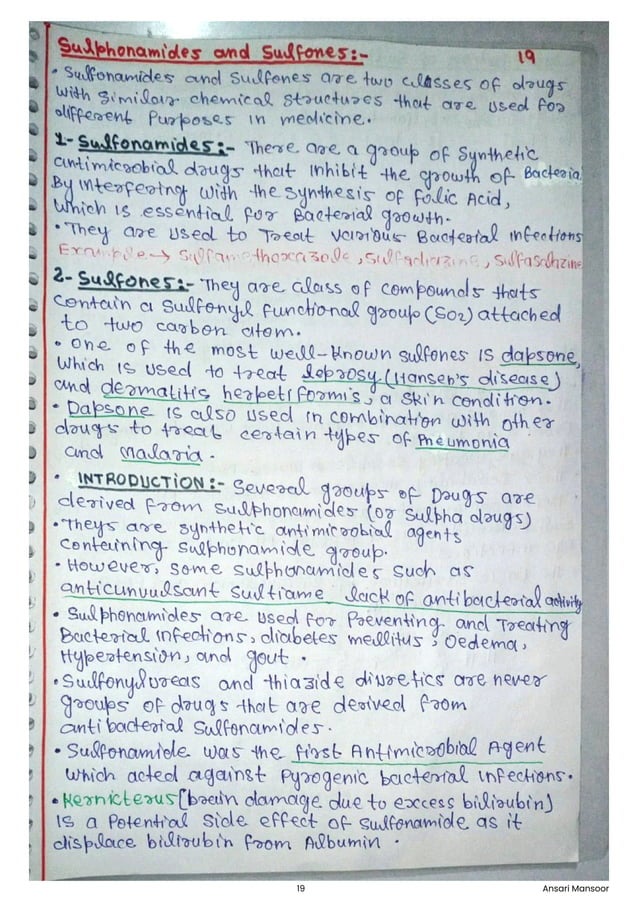 Sulphonamides and Sulfones:- 19
• Sulfonamides and Sulfones are two classes of drugs
with similar chemical structures that are used for
different Purposes in medicine.
1- Sulfonamides:- There are a group of Synthetic
antimicrobial drugs that Inhibit the growth of Bacteria
By Interfering with the synthesis of folic Acid,
Which is essential for Bacterial growth.
• They are used to Treat various Bacterial infections
Example → Sulfamethoxazole, Sulfadiazine, Sulfasalazine
2- Sulfones:- They are class of compounds thats
Contain a Sulfonyl functional group (SO2) attached
to two carbon atom.
• One of the most well-known sulfones is dapsone,
Which is used to treat leprosy (Hansen's disease)
and dermatitis herpetiformis, a skin condition.
• Dapsone is also used in combination with other
drugs to treat certain types of Pneumonia
and malaria.
• INTRODUCTION:- Several groups of Drugs are
derived from sulphonamides (or Sulpha drugs)
• Theys are synthetic antimicrobial agents
Conteining Sulphonamide group.
• However, some sulphonamides such as
anticunvulsant Sultiame lack of antibacterial activity
• Sulphonamides are used for Preventing and Treating
Bacterial Infections, diabetes mellitus, Oedema,
Hypertension, and gout.
• Sulfonylureas and thiazide diuretics are never
groups of drugs that are derived from
antibacterial Sulfonamides.
• Sulfonamide was the first Antimicrobial Agent
which acted against Pyrogenic bacterial infections.
• Kernicterus [brain damage due to excess bilirubin)
Is a Potential side effect of Sulfonamide as it
displace bilirubin from Albumin.
19 Ansari Mansoor